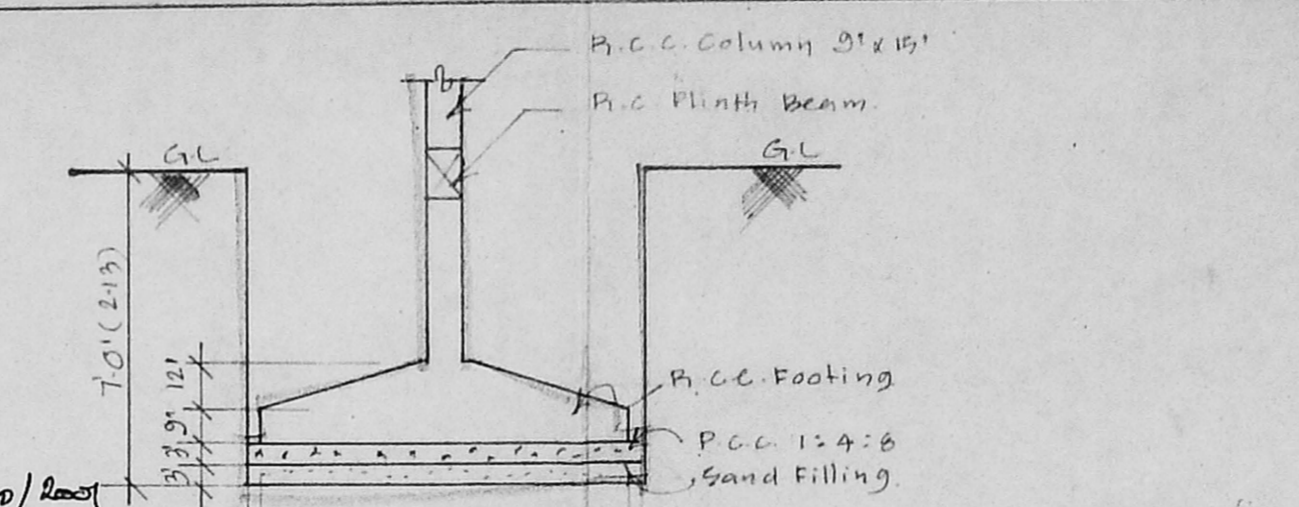 R.C.C. Column 9" x 15"
R.C. Plinth Beam.
G.L
G.L
7'-0" (2.13)
12"
9"
3"
3"
R.C.C. Footing
P.C.C. 1:4:8
Sand Filling.